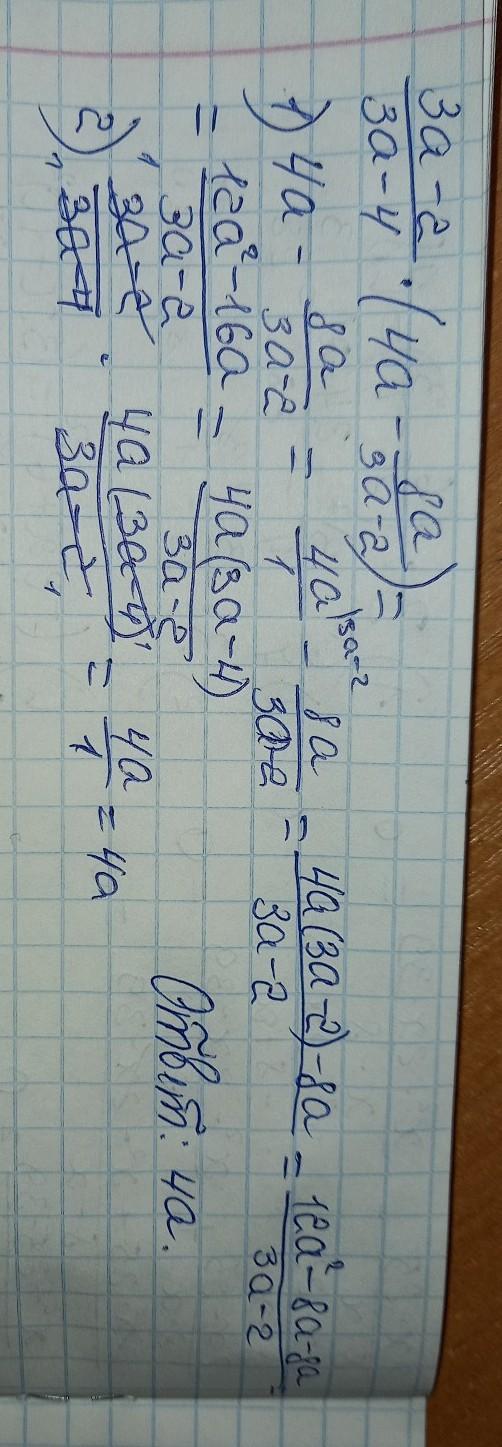 (3a-2)/(3a-4) · (4a - 8a/(3a-2)) =
1) 4a - 8a/(3a-2) = 4a/1 ^(3a-2) - 8a/(3a-2) = (4a(3a-2)-8a)/(3a-2) = (12a²-8a-8a)/(3a-2) =
= (12a²-16a)/(3a-2) = 4a(3a-4)/(3a-2)
2) (3a-2)/(3a-4) · 4a(3a-4)/(3a-2) = 4a/1 = 4a
Ответ: 4a.